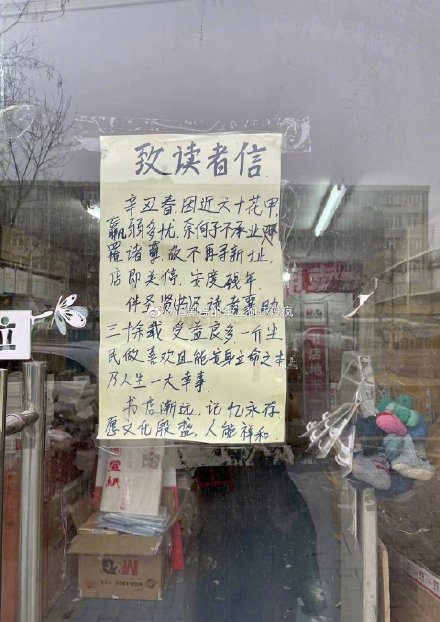 致读者信
辛丑春,因近六十花甲,
羸弱多忧,奈何子不承业
罹诸事,故不再寻新业,
店即关停,安度残年.
读者襄助
三十余载 受益良多 一介生
民做喜欢且能安身立命之本
乃人生一大幸事
书店渐远,记忆永存
愿文化殷盛,人能祥和
M&G